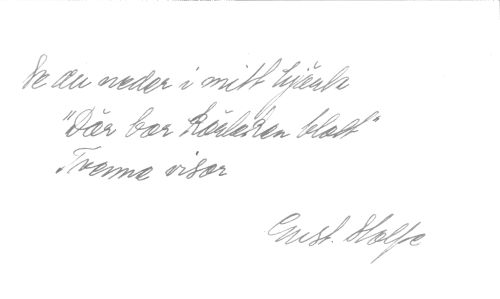 Se du neder i mitt hjärta
"Där bor kärleken blott"
Tvenne visor
Gust. Stolpe